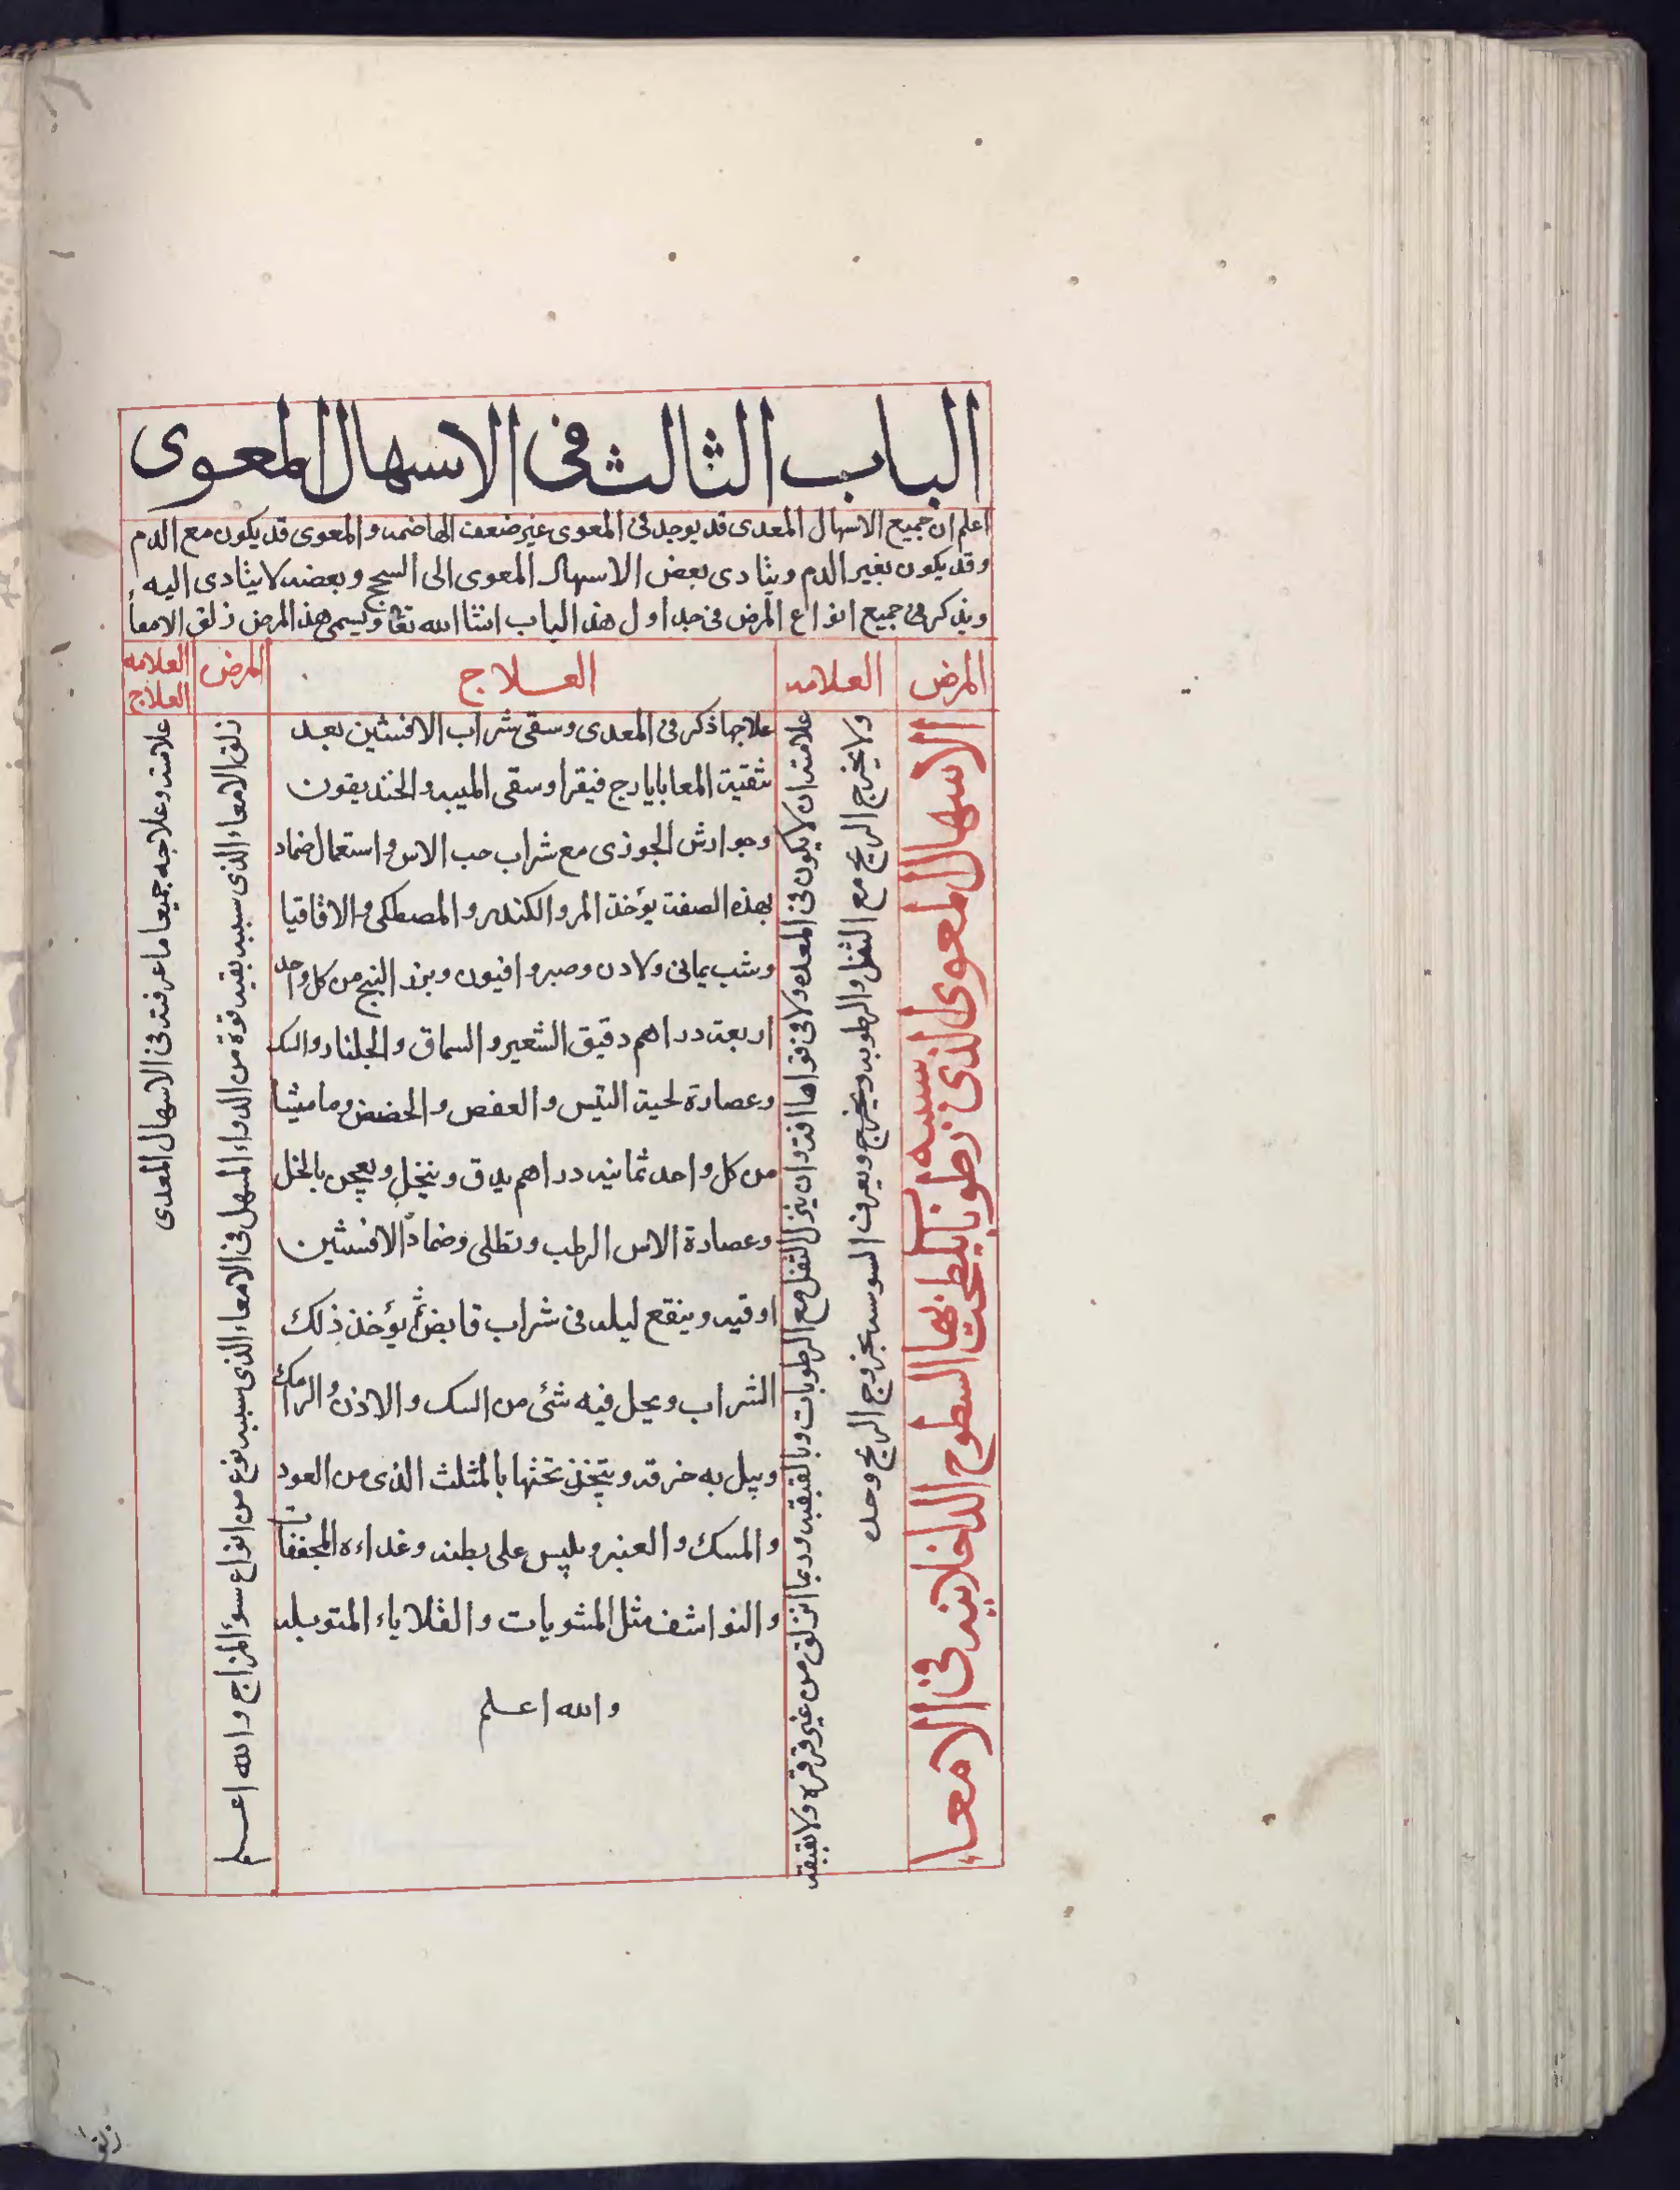 الباب الثالث فى الاسهال المعوى
اعلم ان جميع الاسهال المعدى قد يوجد فى المعوى غير ضعف الهاضمه والمعوى قد يكون مع الدم
وقد يكون بغير الدم ويتادى بعض الاسهال المعوى الى السحج وبعضه لا يتادى اليه
ويذكر فى جميع انواع المرض فى جداول هذا الباب انشا الله تعا ويسمى هذا المرض زلق الامعا
المرض
العلامه
العلاج
المرض
العلامه
العلاج
الاسهال المعوى الذى سببه رطوبات يلطخ بها السطوح الداخلانيه فى الامعاء
علامته ان لا يكون فى المعده ولا فى قواها افة وان ينزل الثفل مع الرطوبات وبالقبقبه وربما انزلق من غير قرقره ولا بقبقه
ولا يخرج الريح مع الثفل والرطوبه ويخرج ويعرف السوسه بخروج الريح وحده
علاجها ذكر فى المعدى وسقى شراب الافسنتين بعد
تنقية المعا بايارج فيقرا وسقى الميبه والخنديقون
وجوارش الجوزى مع شراب حب الاس واستعمال ضماد
بهذه الصفة يؤخذ المر والكندر والمصطكى والاقاقيا
وشب يمانى ولادن وصبر وافيون وبزر البنج من كل واحد
اربعة دراهم دقيق الشعير والسماق والجلنار والسك
وعصارة لحية التيس والعفص والحضض وماميثا
من كل واحد ثمانيه دراهم يدق وينخل ويعجن بالخل
وعصارة الاس الرطب وتطلى وضماد الافسنتين
اوقيه وينقع ليله فى شراب قابض ثم يؤخذ ذلك
الشراب ويحل فيه شئ من السك والاذن والرامك
ويبل به خرقه ويتخذ تختها بالمثلث الذى من العود
والمسك والعنبر ويلبس على بطنه وغداءه المجففات
والنواشف مثل المشويات والقلاياء المتوبله
والله اعلم
زلق الامعاء الذى سببه بقيه قوة من الدواء المسهل فى الامعاء الذى سببه نوع من انواع سوء المزاج والله اعلم
علامته وعلاجه جميعا ما عرفته فى الاسهال المعدى